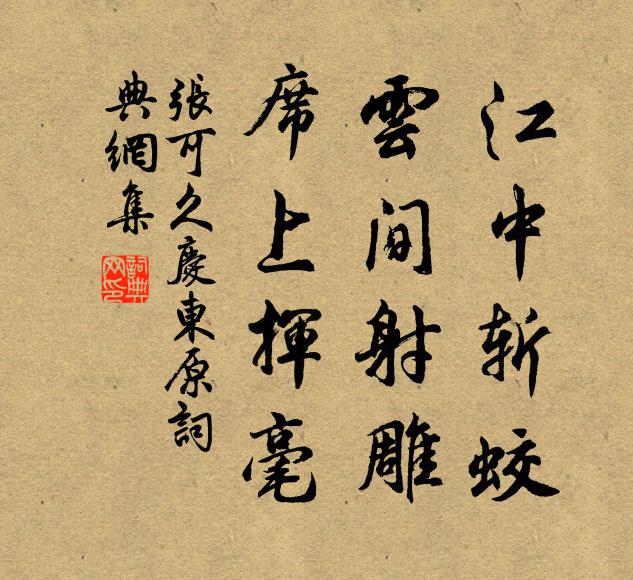 江中斬蛟
雲間射雕
席上揮毫
張可久慶東原詞
典網集
詞典網印